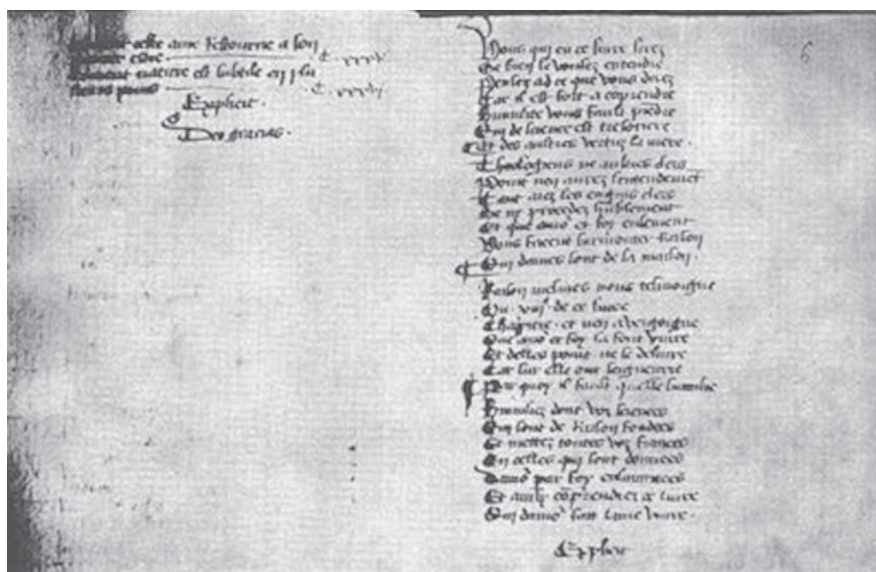 ceste ame Retourne a son
premier estre C. xxxv
Comment nature est subtile en plu
sieurs poins C. xxxvi
Explicit.
Deo gracias.
6
Vous qui en ce livre lirez
Se bien le voulez entendre
Pensez ad ce que vous direz
Car il est fort a cōprendre
Humilite vous fault prēdre
Qui de science est tresoriere
Et des aultres vertuz la mere.
Theologiens ne aultres clers
Point nen aurez lentendemēt
Tant aiez les engins clers
Se ny procedez hūblement
Et que amoʳ et foy ensement
Vous facent surmonter Raison
Qui dames sont de la maison.
Raison mesmes nous tesmoigne
Ou de ce livre
Chapitre et nen a vergoigne
Que amoʳ et foy la font vivre
Et delles point ne se delivre
Car sur elle ont seigneurie
Par quoy il fault quelle sumilie
Humiliez dont voz sciences
Qui sont de Raison fondees
Et mettez toutes voz fiances
En celles qui sont donnees
Damoʳ par foy enluminees
Et ainsy cōprendrez ce livre
Qui damoʳ fait lame vivre.
Explicit